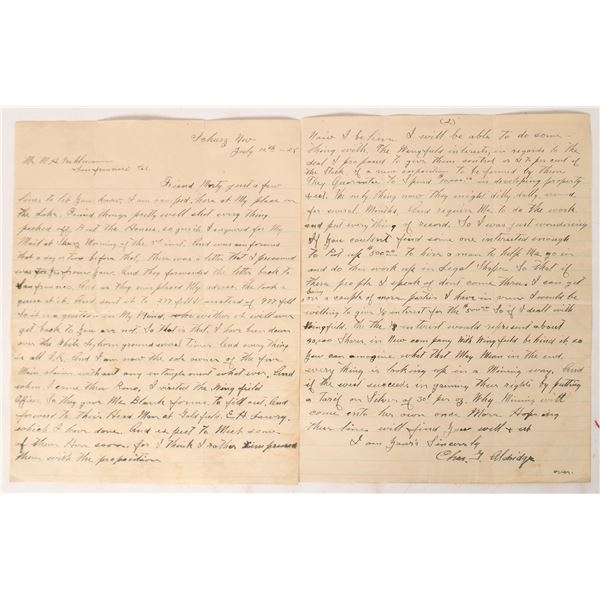 Nev
July 12th - 28
Mr. W. A.
San Francisco Cal
Friend Morty just a few
lines to let you know I am
here at My place on
the Lake. Found things pretty well shot every thing
packed off But the Houses, as quick I inquired for My
Mail at Morning of the 1st inst. And was informed
that a day or two before that, there was a letter that I presumed
was from you. And they forwarded the letter back to
San Francisco. And as they misplaced My adress. She took a
guess at it. And sent it to 277 fell st instead of 777 fell
So it is a question in My Mind, whether it will ever
get back to you are not. So that is that. I have been down
over the White Horn ground several times. And every thing
is all O.K. And I am now the sole owner of the five
Main claims without any entanglement what ever. And
when I came thru Reno, I visited the Wingfield
Office. So they gave Me Blank forms to fill out. And
forward to their Head Man at Goldfield.
which I have done. And as just to Meet some
of them Here soon for I think I rather impressed
them with the proposition
(2)
Now I be here I will be able to do some-
thing with the Wingfield interests, in regards to the
deal I proposed to give them control or 51 % per cent of
the stock of a new corporation to be formed by them
They Guarantee to Spend in developing property
& ect. The only thing now they might dilly dally around
for several Months, And require Me to do the work
and put every thing of record. So I was just wondering
if you couldn't find some one interested enough
to Put up $500.00 to hire a man to help Me
on and do this work up in Legal Shape. So that if
these people I speak of dont come thru. I can get
on a couple of more parties I have in view. I would be
willing to give interest for the $500.00 So if I deal with
Wingfield. the interest would represent about
Shares in New company with Wingfield be hind it so
you can amagine what that May Mean in the end.
every thing is looking up in a Mining way. And
if the west succeeds in gaining their rights by putting
a Tariff on Silver of 30¢ per oz. Why Mining will
come onto her own once More Hoping
these lines will find you well & ect
I am Yours Sincerely
Chas. F. Aldridge
over.